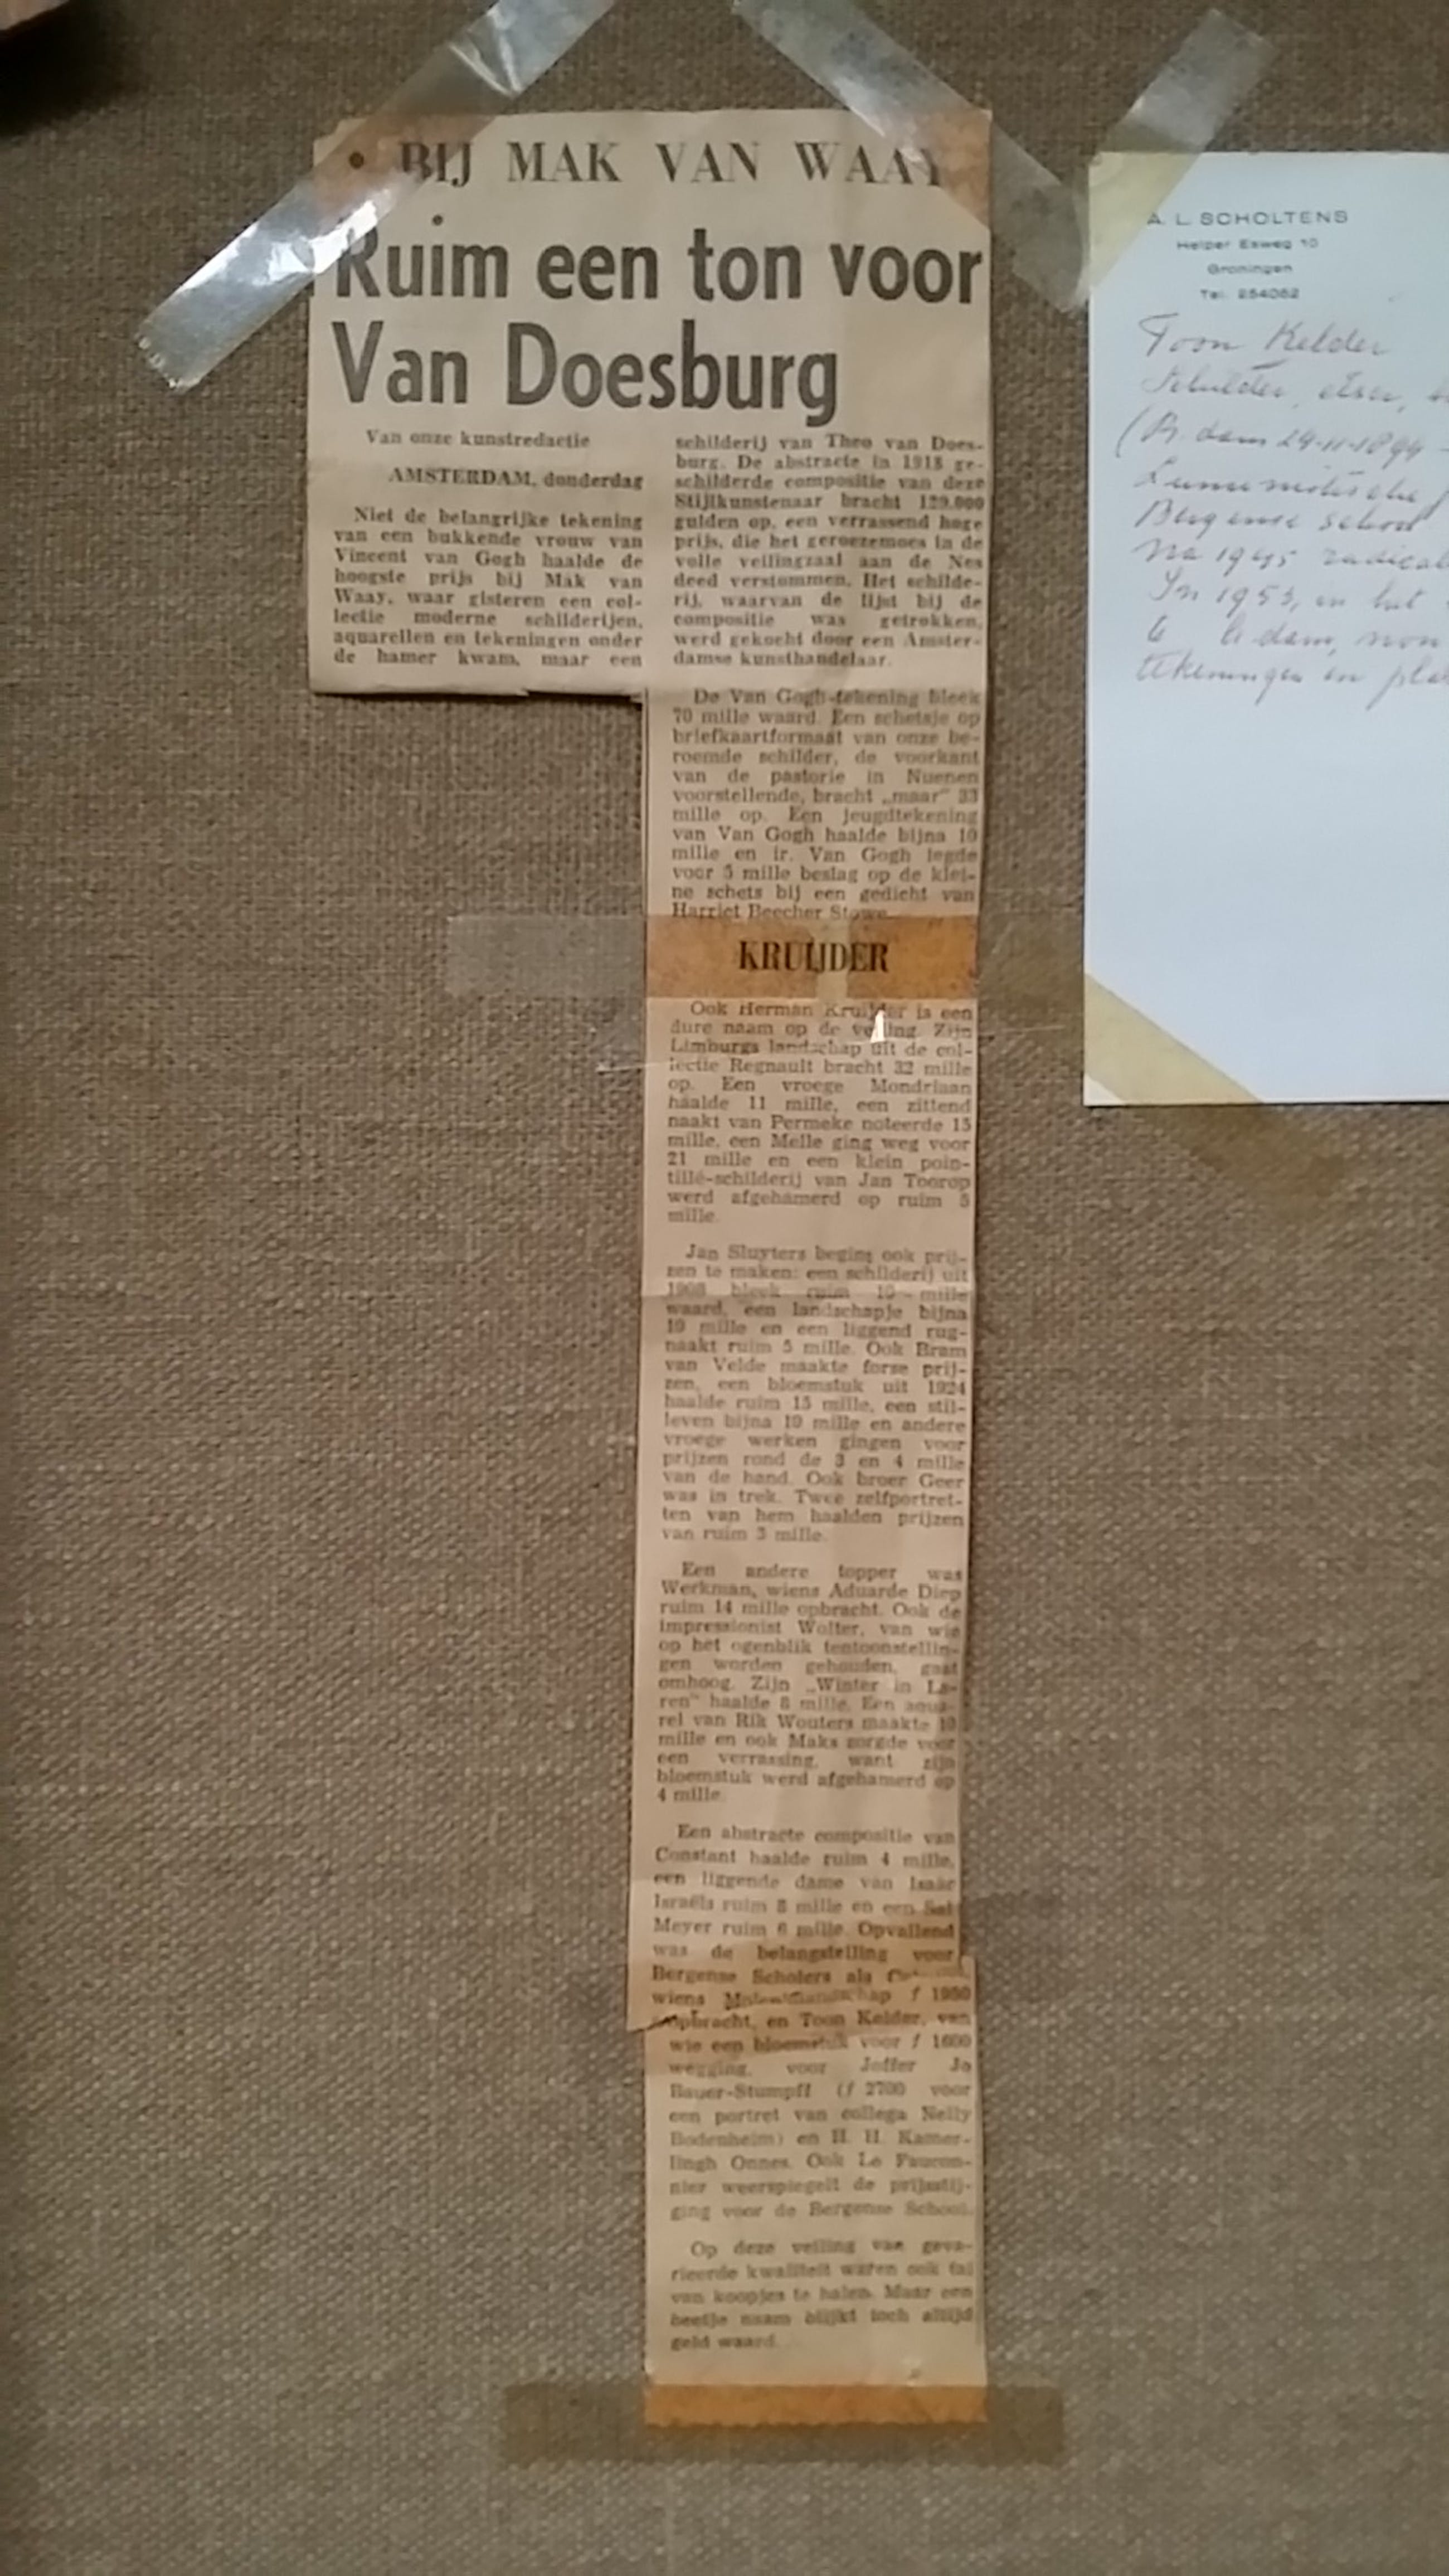 • BIJ MAK VAN WAAY
Ruim een ton voor
Van Doesburg
Van onze kunstredactie
AMSTERDAM, donderdag
Niet de belangrijke tekening
van een bukkende vrouw van
Vincent van Gogh haalde de
hoogste prijs bij Mak van
Waay, waar gisteren een col-
lectie moderne schilderijen,
aquarellen en tekeningen onder
de hamer kwam, maar een
schilderij van Theo van Does-
burg. De abstracte in 1918 ge-
schilderde compositie van deze
Stijlkunstenaar bracht 129.000
gulden op, een verrassend hoge
prijs, die het geroezemoes in de
volle veilingzaal aan de Nes
deed verstommen. Het schilde-
rij, waarvan de lijst bij de
compositie was getrokken,
werd gekocht door een Amster-
damse kunsthandelaar.
De Van Gogh-tekening bleek
70 mille waard. Een schetsje op
briefkaartformaat van onze be-
roemde schilder, de voorkant
van de pastorie in Nuenen
voorstellende, bracht „maar” 33
mille op. Een jeugdtekening
van Van Gogh haalde bijna 10
mille en ir. Van Gogh legde
voor 5 mille beslag op de klei-
ne schets bij een gedicht van
Harriet Beecher Stowe.
KRUIJDER
Ook Herman Kruijder is een
dure naam op de veiling. Zijn
Limburgs landschap uit de col-
lectie Regnault bracht 32 mille
op. Een vroege Mondriaan
haalde 11 mille, een zittend
naakt van Permeke noteerde 15
mille, een Melle ging weg voor
21 mille en een klein poin-
tillé-schilderij van Jan Toorop
werd afgehamerd op ruim 5
mille.
Jan Sluyters begint ook prij-
zen te maken: een schilderij uit
bleek ruim 10 mille
waard, een landschapje bijna
10 mille en een liggend rug-
naakt ruim 5 mille. Ook Bram
van Velde maakte forse prij-
zen, een bloemstuk uit 1924
haalde ruim 15 mille, een stil-
leven bijna 10 mille en andere
vroege werken gingen voor
prijzen rond de 3 en 4 mille
van de hand. Ook broer Geer
was in trek. Twee zelfportret-
ten van hem haalden prijzen
van ruim 3 mille.
Een andere topper was
Werkman, wiens Aduarde Diep
ruim 14 mille opbracht. Ook de
impressionist Wolter, van wie
op het ogenblik tentoonstellin-
gen worden gehouden, gaat
omhoog. Zijn „Winter in La-
ren” haalde 8 mille. Een aqua-
rel van Rik Wouters maakte 10
mille en ook Maks zorgde voor
een verrassing, want zijn
bloemstuk werd afgehamerd op
4 mille.
Een abstracte compositie van
Constant haalde ruim 4 mille,
een liggende dame van Isaäc
Israëls ruim 8 mille en een Sal
Meyer ruim 6 mille. Opvallend
was de belangstelling voor
Bergense Scholers als
wiens f 1950
opbracht, en Toon Kelder, van
wie een bloemstuk voor f 1600
wegging, voor Joffer Jo
Bauer-Stumpff (f 2700 voor
een portret van collega Nelly
Bodenheim) en H. H. Kamer-
lingh Onnes. Ook Le Faucon-
nier weerspiegelt de prijsstij-
ging voor de Bergense School.
Op deze veiling van geva-
rieerde kwaliteit waren ook tal
van koopjes te halen. Maar een
beetje naam blijkt toch altijd
geld waard.
A. L. SCHOLTENS
Helper Esweg 10
Groningen
Tel. 254052
Toon Kelder
Schilder, etser,
(R.dam 29-11-1894 -
Luministische
Bergense school
Na 1945 radicaal
In 1953, in het
dam,
tekeningen en